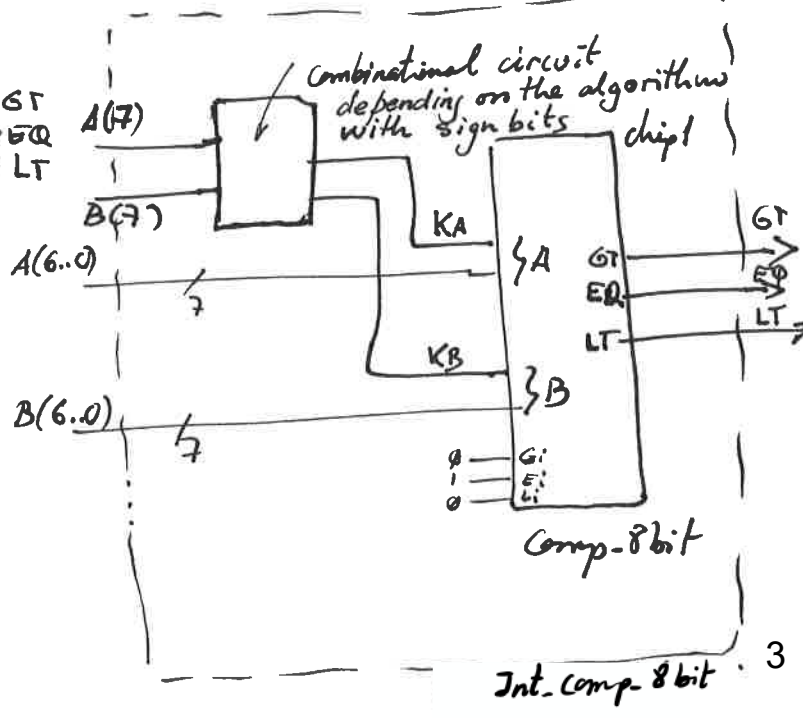 combinational circuit
depending on the algorithm
with sign bits
chip1
GT
EQ
LT
A(7)
B(7)
A(6..0)
7
B(6..0)
7
KA
KB
A
B
GT
EQ
LT
GT
EQ
LT
0 Gi
1 Ei
0 Li
Comp_8bit
Int_comp_8bit
3